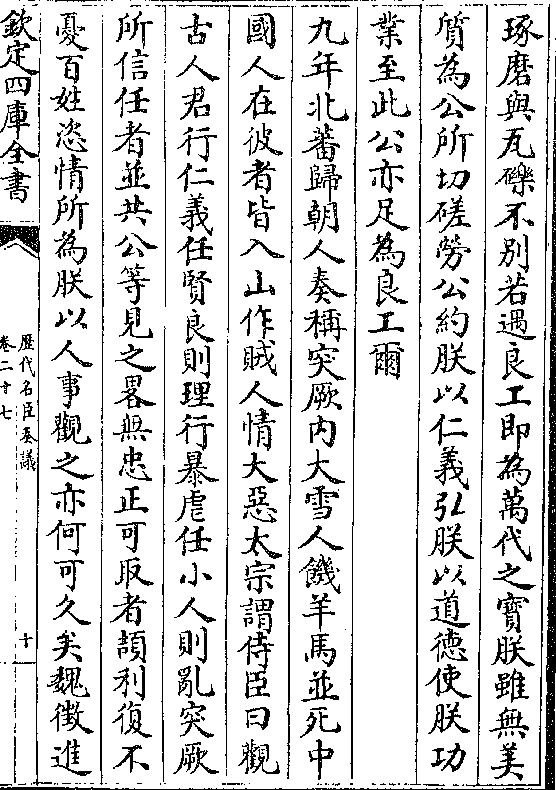 琢磨與瓦礫不別若遇良工即為萬代之寶朕雖無美
質為公所切磋勞公約朕以仁義弘朕以道德使朕功
業至此公亦足為良工爾
九年北蕃歸朝人奏稱突厥内大雪人饑羊馬並死中
國人在彼者皆入山作賊人情大惡太宗謂侍臣曰觀
古人君行仁義任賢良則理行暴虐任小人則亂突厥
所信任者並共公等見之畧無忠正可取者頡利復不
憂百姓恣情所為朕以人事觀之亦何可久矣魏徵進
欽定四庫全書
歴代名臣奏議
卷二十七
十